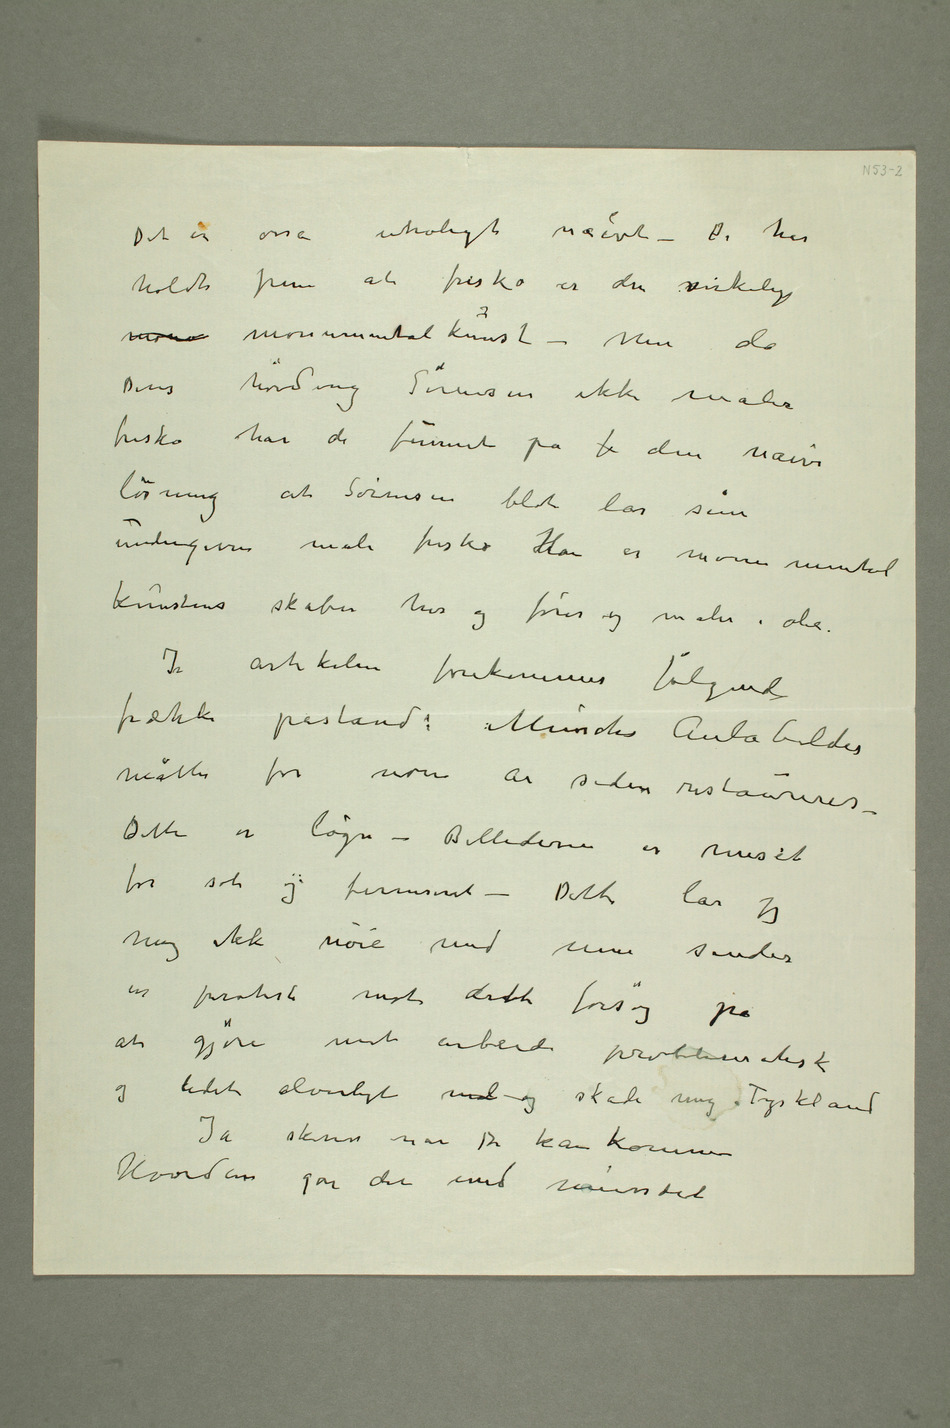 N53-2
Det er osså utroligt naeivt – De har
holdt frem at fresko er den virkelig
mono monumumtal kunst – Men da
Deres hövding Sörensen ikke maler
fresko har de funnet på fr den naive
lösning at Sörensen blot lar sine
undergivne male fresko Han er monumental
kunstens skaber her og förer og maler i olie.
I artikelen forekommer fölgende
frække påstand: Munchs Aulabilder
måtte for noen år siden restaureres –
Dette er lögn – Billederne er renset
for sot og fernisert – Dette lar jeg
mig ikke nöie med men sender
en protest mot dette forsög på
at gjöre mit arbeide problematisk
og ledet alvorligt med og skade mig i Tyskland
Ja skriv når De kan komme
Hvordan går det med museet